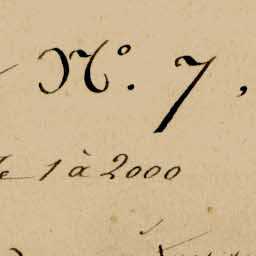 N.° 7,
de 1 à 2000